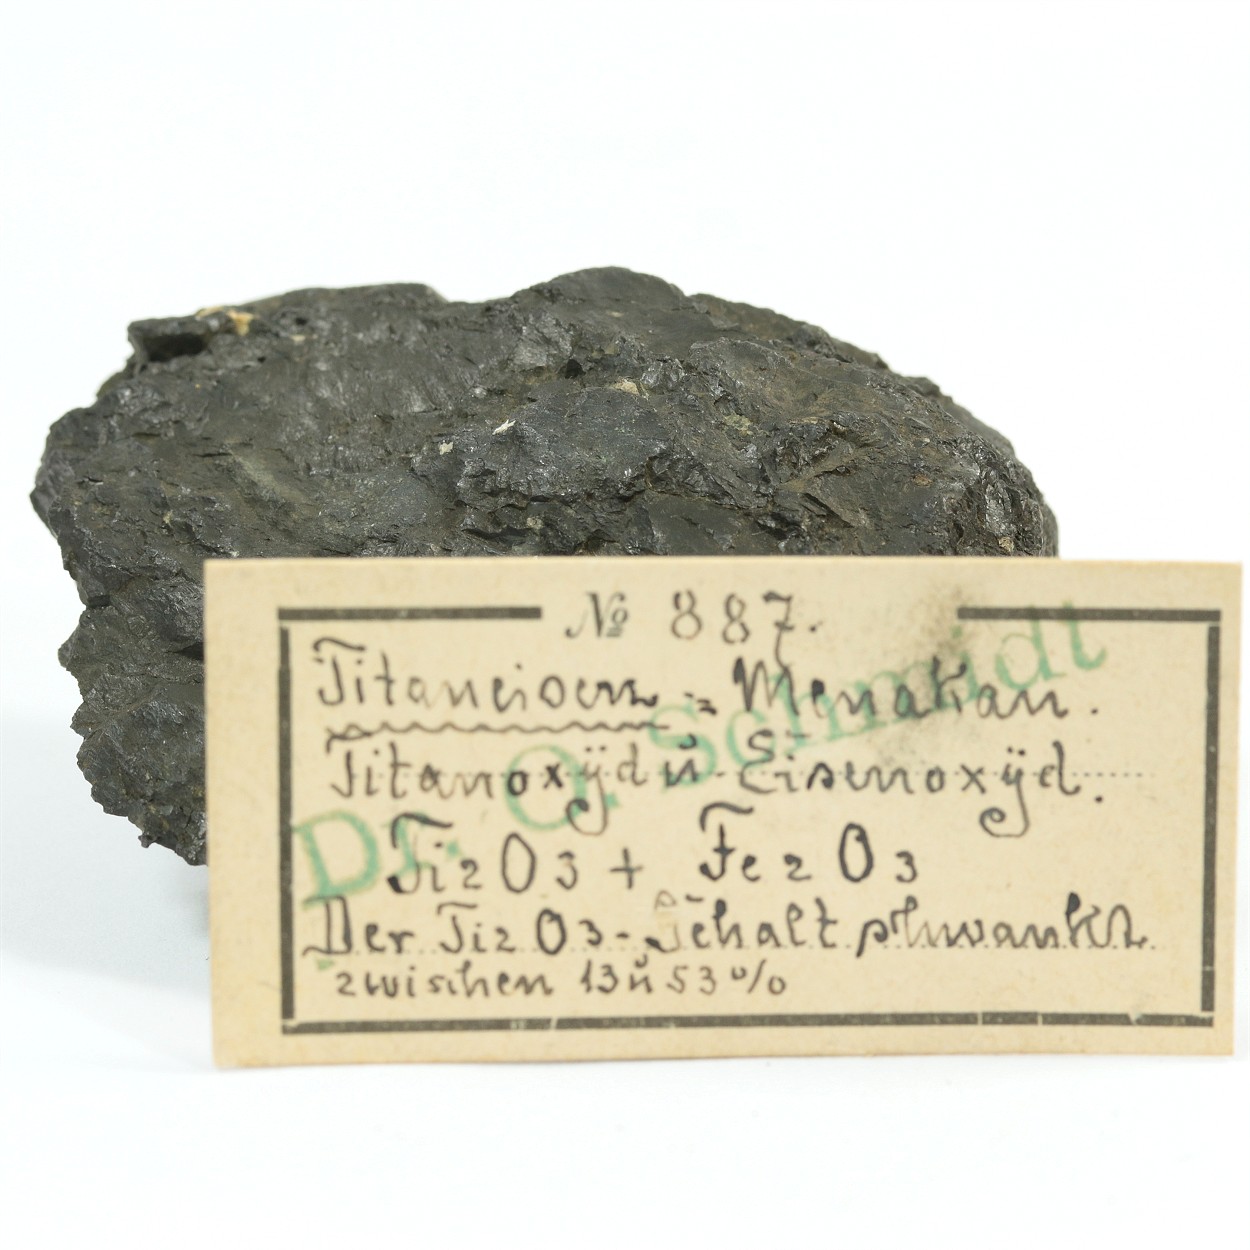 № 887.
Titaneisen = Menakan.
Titanoxÿd ŭ Eisenoxÿd.
Ti2O3 + Fe2O3
Der Ti2O3-Gehalt schwankt
zwischen 13 ŭ 53%
Dr. O. Schmidt